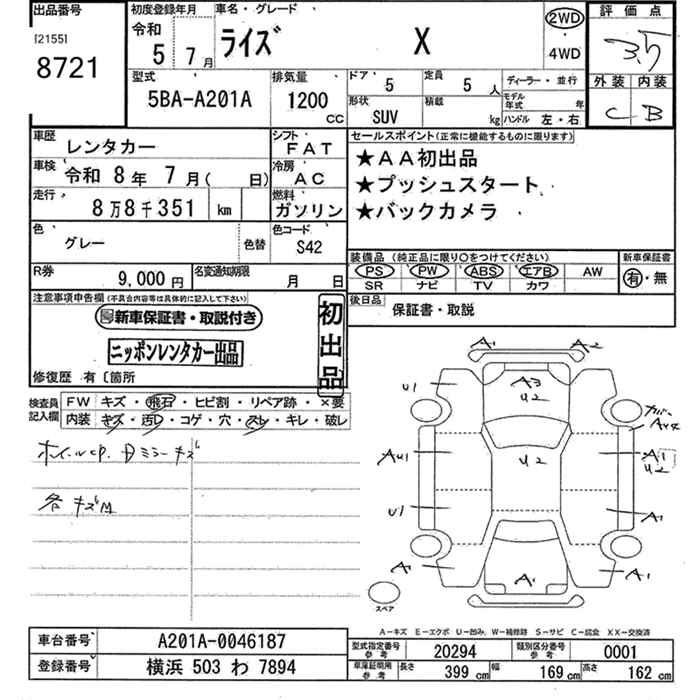 出品番号 初度登録年月 車名・グレード 2WD 評価点
[2155] 令和 ライズ X 3.5
8721 5 7月 4WD 外装 内装
型式 排気量 ドア 5 定員 5 人 ディーラー・並行 C B
5BA-A201A 1200 CC 形状 SUV 積載 kg モデル年式 年
ハンドル 左・右
車歴 レンタカー シフト FAT セールスポイント(正常に機能するものに限ります)
車検 令和 8年 7月( 日) 冷房 AC ★AA初出品
走行 8万8千351 km 燃料 ガソリン ★プッシュスタート
★バックカメラ
色 グレー 色替 色コード S42
装備品 (純正品に限り○をつけてください) 新車保証書
R券 9,000円 名変通知期限 月 日 PS PW ABS エアB AW 有・無
SR ナビ TV カワ
注意事項申告欄(不具合内容等は具体的に記入して下さい) 後日品 保証書・取説
新車保証書・取説付き 初出品
ニッポンレンタカー出品
修復歴 有〔箇所
検査員記入欄 FW キズ・飛石・ヒビ割・リペア跡・×要
内装 キズ・汚レ・コゲ・穴・スレ・キレ・破レ
A1 A2
U1 A3 U2 カバー A44
ホイールCP. Dミラーキズ AU1 U2 A1 U2
各キズM U1 A1
A1 A1 A1
スペア
A-キズ E-エクボ U-凹み W-補修跡 S-サビ C-腐食 XX-交換済
車台番号 A201A-0046187 型式指定番号 参考 20294 類別区分番号 参考 0001
登録番号 横浜 503 わ 7894 車庫証明用 参考 長さ 399 cm 幅 169 cm 高さ 162 cm